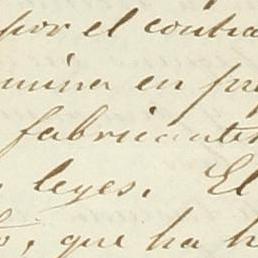 por el contra
mina en pr
fabricantes
leyes. El
que ha h